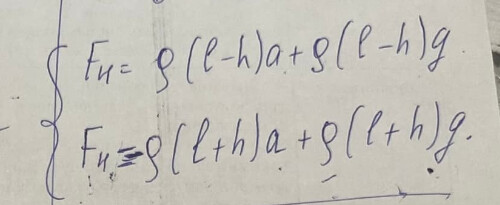 Fн = ρ(l-h)a + ρ(l-h)g
Fн = ρ(l+h)a + ρ(l+h)g.